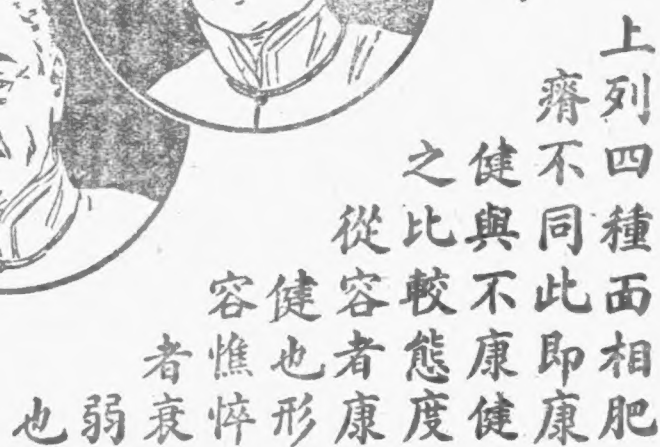 上列四種面相肥
瘠不同此即康
健與不康健
之比較態度
從容者康
健也形
容憔悴
者衰
弱
也